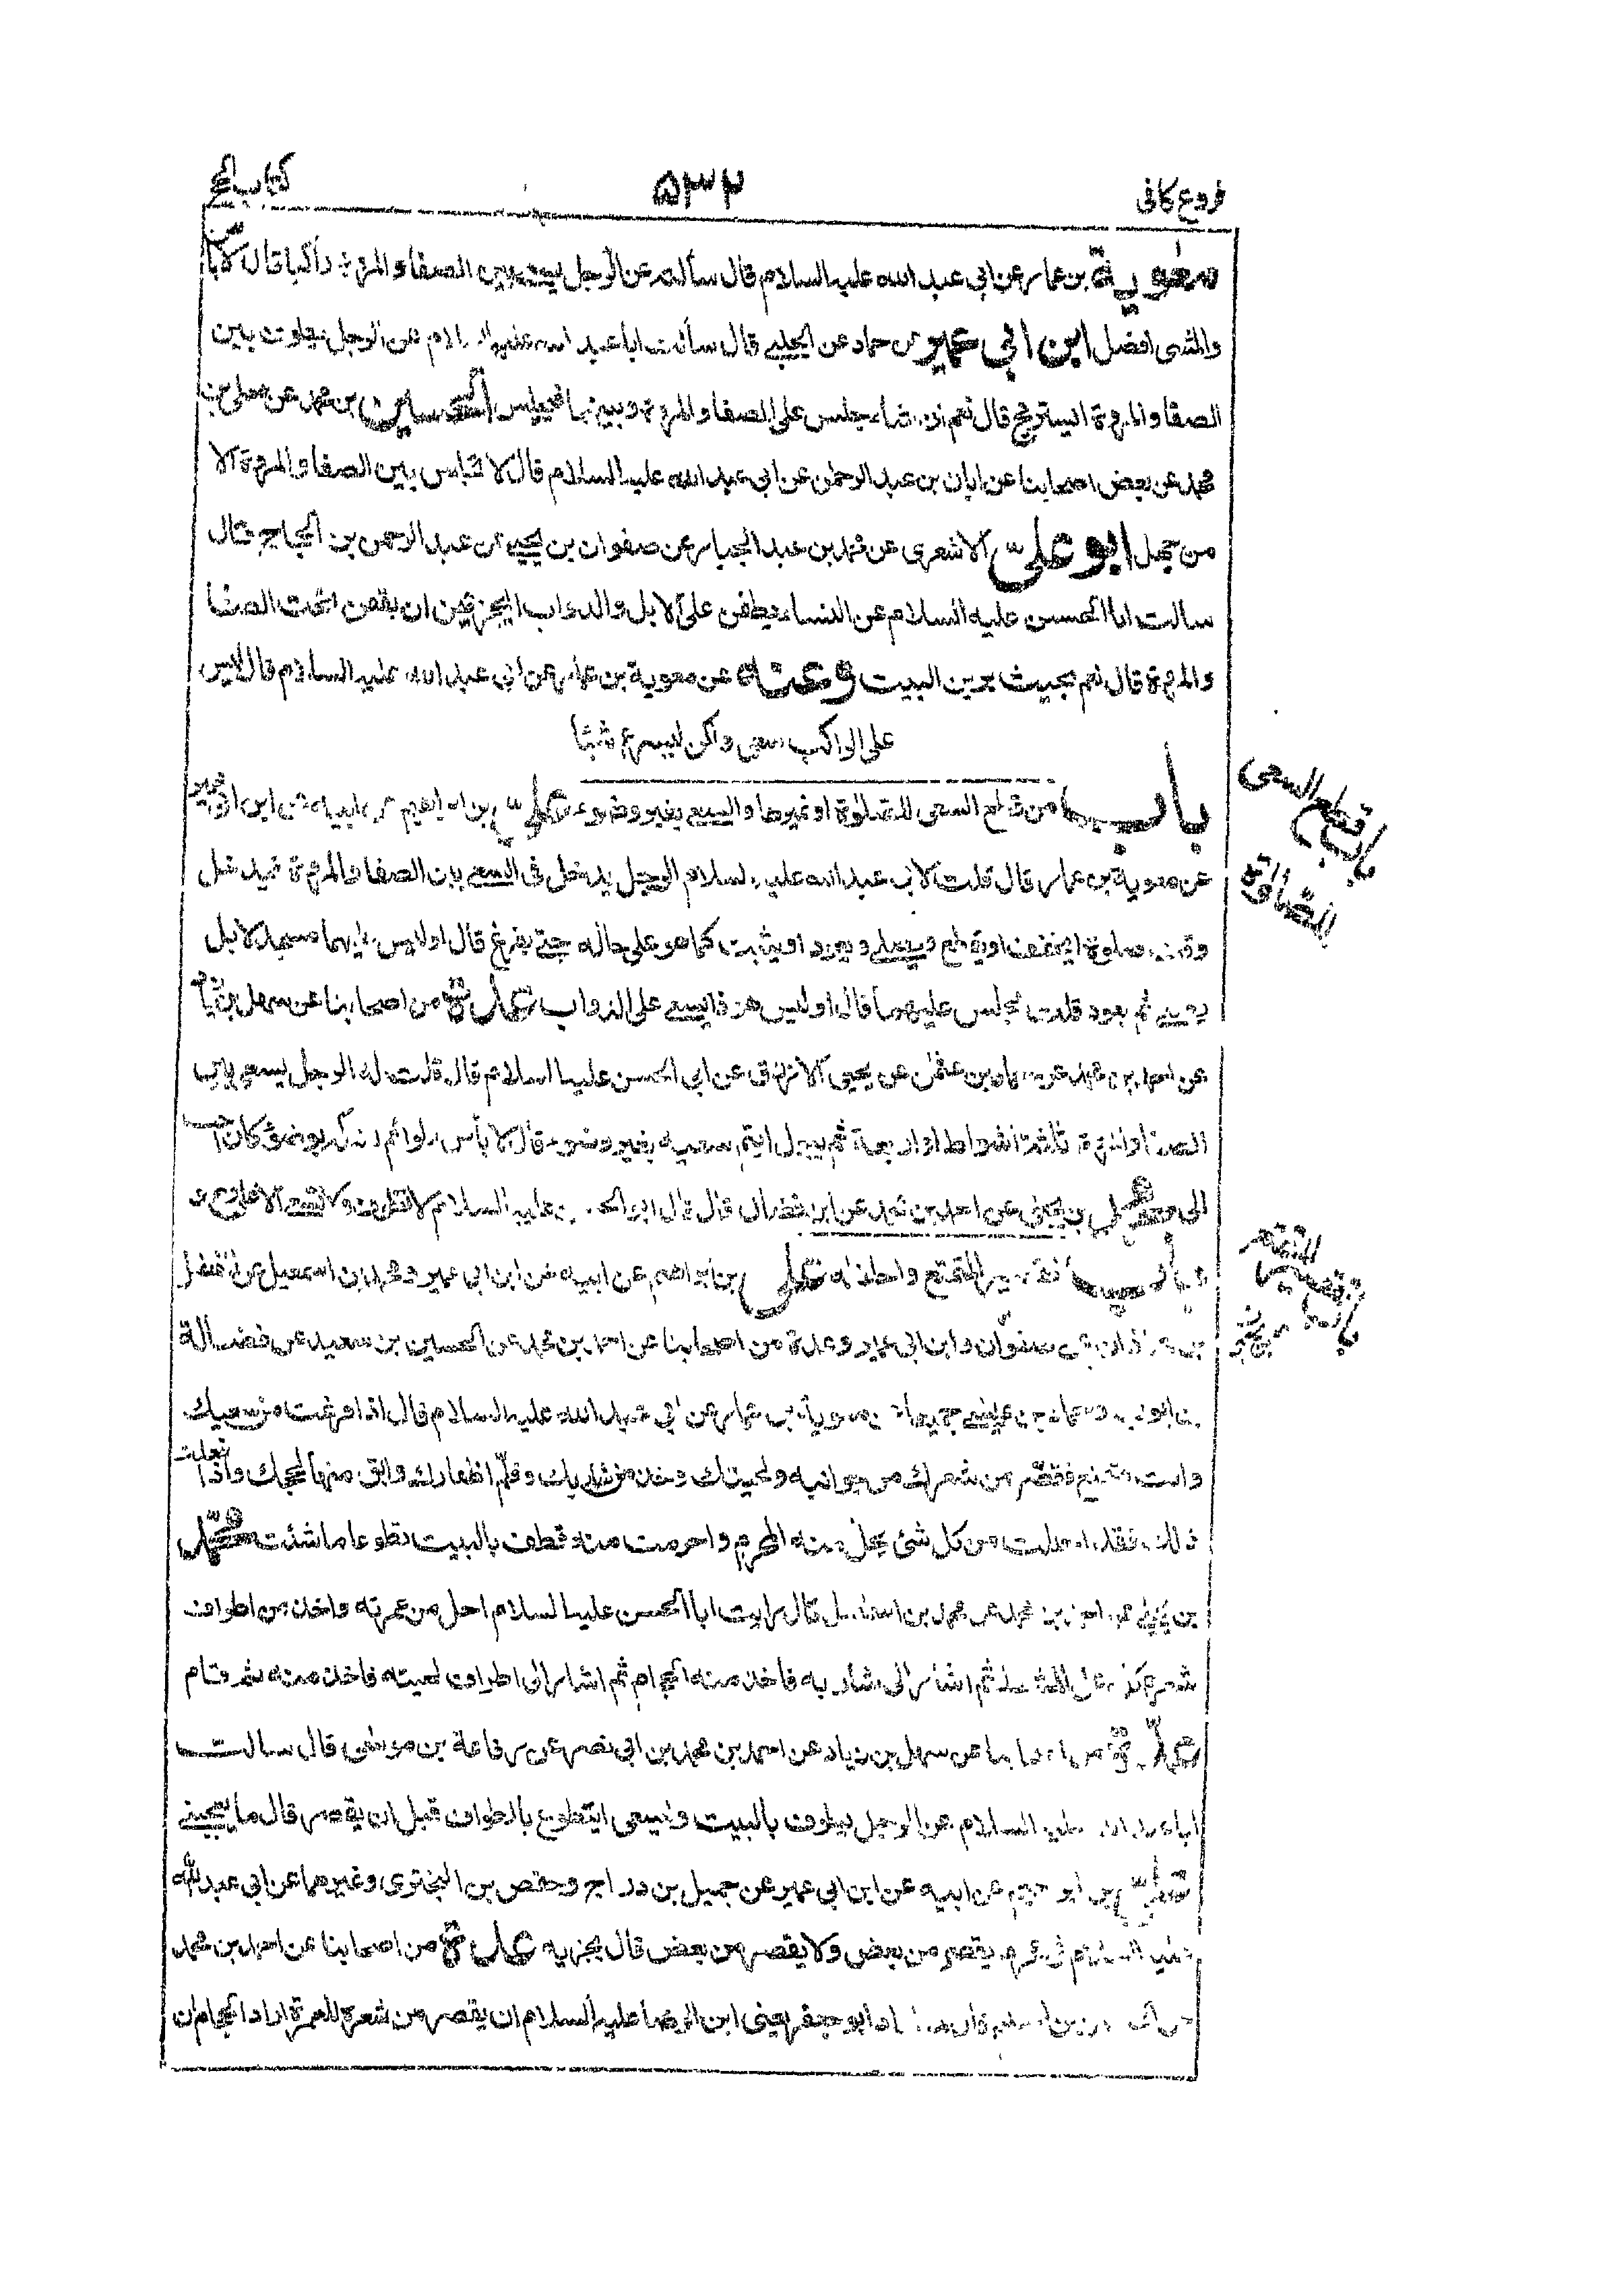 فروع كافى
٥٣٢
كتاب الحج
معوية بن عمار عن ابى عبد الله عليه السلام قال سألته عن الرجل يسعى بين الصفا والمروة راكبا قال لا بأس
والمشى افضل ابن ابى عمير عن حماد عن الحلبي قال سألت ابا عبد الله عليه السلام عن الرجل يطوف بين
الصفا والمروة ايستريح قال نعم ان شاء جلس على الصفا والمروة وبينهما فيجلس الحسين بن محمد عن معلى بن
محمد عن بعض اصحابنا عن ابان بن عبد الرحمن عن ابى عبد الله عليه السلام قال لا تجلس بين الصفا والمروة الا
من جهد ابو على الاشعرى عن محمد بن عبد الجبار عن صفوان بن يحيى عن عبد الرحمن بن الحجاج قال
سالت ابا الحسن عليه السلام عن النساء يطفن على الابل والدواب ايجزيهن ان يقفن تحت الصفا
والمروة قال نعم بحيث يرين البيت وعنه عن معوية بن عمار عن ابى عبد الله عليه السلام قال ليس
على الراكب سعى ولكن ليسرع شيئا
باب من قطع السعى للصلوة او غيرها والسعى بغير وضوء على بن ابراهيم عن ابيه عن ابن ابى عمير
عن معوية بن عمار قال قلت لابى عبد الله عليه السلام الرجل يدخل فى السعى بين الصفا والمروة فيدخل
وقت صلوة ايخفف او يقطع ويصلى ويعود او يثبت كما هو على حاله حتى يفرغ قال اوليس عليهما مسجد لا بل
يصلى ثم يعود قلت يجلس عليهما قال اوليس هو ذا يسعى على الدواب عدة من اصحابنا عن سهل بن زياد
عن احمد بن محمد عن حماد بن عثمن عن يحيى الازرق عن ابى الحسن عليه السلام قال قلت له الرجل يسعى بين
الصفا والمروة ثلثة اشواط او اربعة ثم يبول ايتم سعيه بغير وضوء قال لا بأس ولو اتم نسكه بوضوء كان احب
الى محمد بن يحيى عن احمد بن محمد عن ابن فضال قال قال ابو الحسن عليه السلام لا تطوف ولا تسعى الا على وضوء
باب تقصير المتمتع واحلاله على بن ابراهيم عن ابيه عن ابن ابى عمير ومحمد بن اسمعيل عن الفضل
بن شاذان عن صفوان وابن ابى عمير وعدة من اصحابنا عن احمد بن محمد عن الحسين بن سعيد عن فضالة
بن ايوب وحماد بن عيسى جميعا عن معوية بن عمار عن ابى عبد الله عليه السلام قال اذا فرغت من سعيك
وانت متمتع فقصر من شعرك من جوانبه ولحيتك وخذ من شاربك وقلم اظفارك وابق منها لحجك واذا فعلت
ذلك فقد احللت من كل شئ يحل منه المحرم واحرمت منه فطف بالبيت تطوعا ما شئت محمد
بن يحيى عن احمد بن محمد عن محمد بن اسمعيل قال رايت ابا الحسن عليه السلام احل من عمرته واخذ من اطراف
شعره كله على المشط ثم اشار الى شاربه فاخذ منه الحجام ثم اشار الى اطراف لحيته فاخذ منه ثم قام
عدة من اصحابنا عن سهل بن زياد عن احمد بن محمد بن ابى نصر عن رفاعة بن موسى قال سالت
ابا عبد الله عليه السلام عن الرجل يطوف بالبيت ويسعى ايتطوع بالطواف قبل ان يقصر قال ما يعجبنى
على بن ابراهيم عن ابيه عن ابن ابى عمير عن جميل بن دراج وحفص بن البخترى وغيرهما عن ابى عبد الله
عليه السلام فى محرم يقصر من بعض ولا يقصر من بعض قال يجزيه عدة من اصحابنا عن احمد بن محمد
اراد ابو جعفر يعنى ابن الرضا عليه السلام ان يقصر من شعره للعمرة اراد الحجام ان
باب قطع السعى
للصلوة
باب تقصير المتمتع